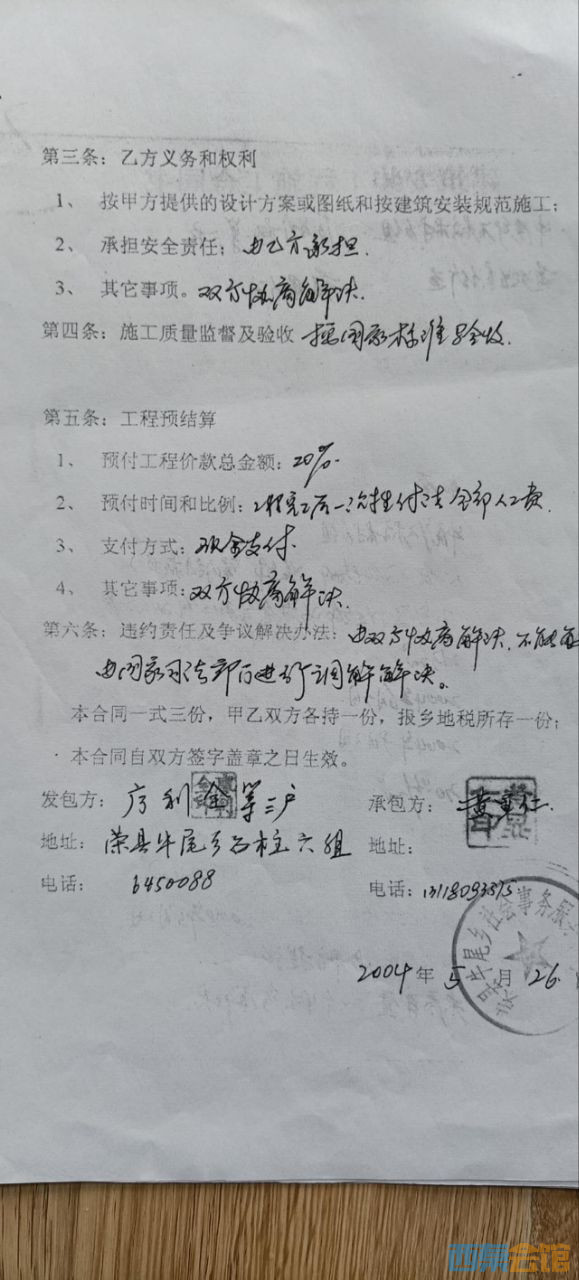 第三条：乙方义务和权利
1、 按甲方提供的设计方案或图纸和按建筑安装规范施工；
2、 承担安全责任；由乙方承担.
3、 其它事项。双方协商解决.
第四条：施工质量监督及验收 按国家标准验收.
第五条：工程预结算
1、 预付工程价款总金额：20%.
2、 预付时间和比例：工程完工后一次性付清全部人工费.
3、 支付方式：现金支付.
4、 其它事项：双方协商解决.
第六条：违约责任及争议解决办法：由双方协商解决.不能
由国家司法部门进行调解解决。
本合同一式三份，甲乙双方各持一份，报乡地税所存一份；
本合同自双方签字盖章之日生效。
发包方： 利金等三户 承包方：黄
地址：荣县牛尾乡石柱六组 地址：
电话：6450088 电话：13118093515
牛尾乡社会事务服
2004年5月26
西泵会馆